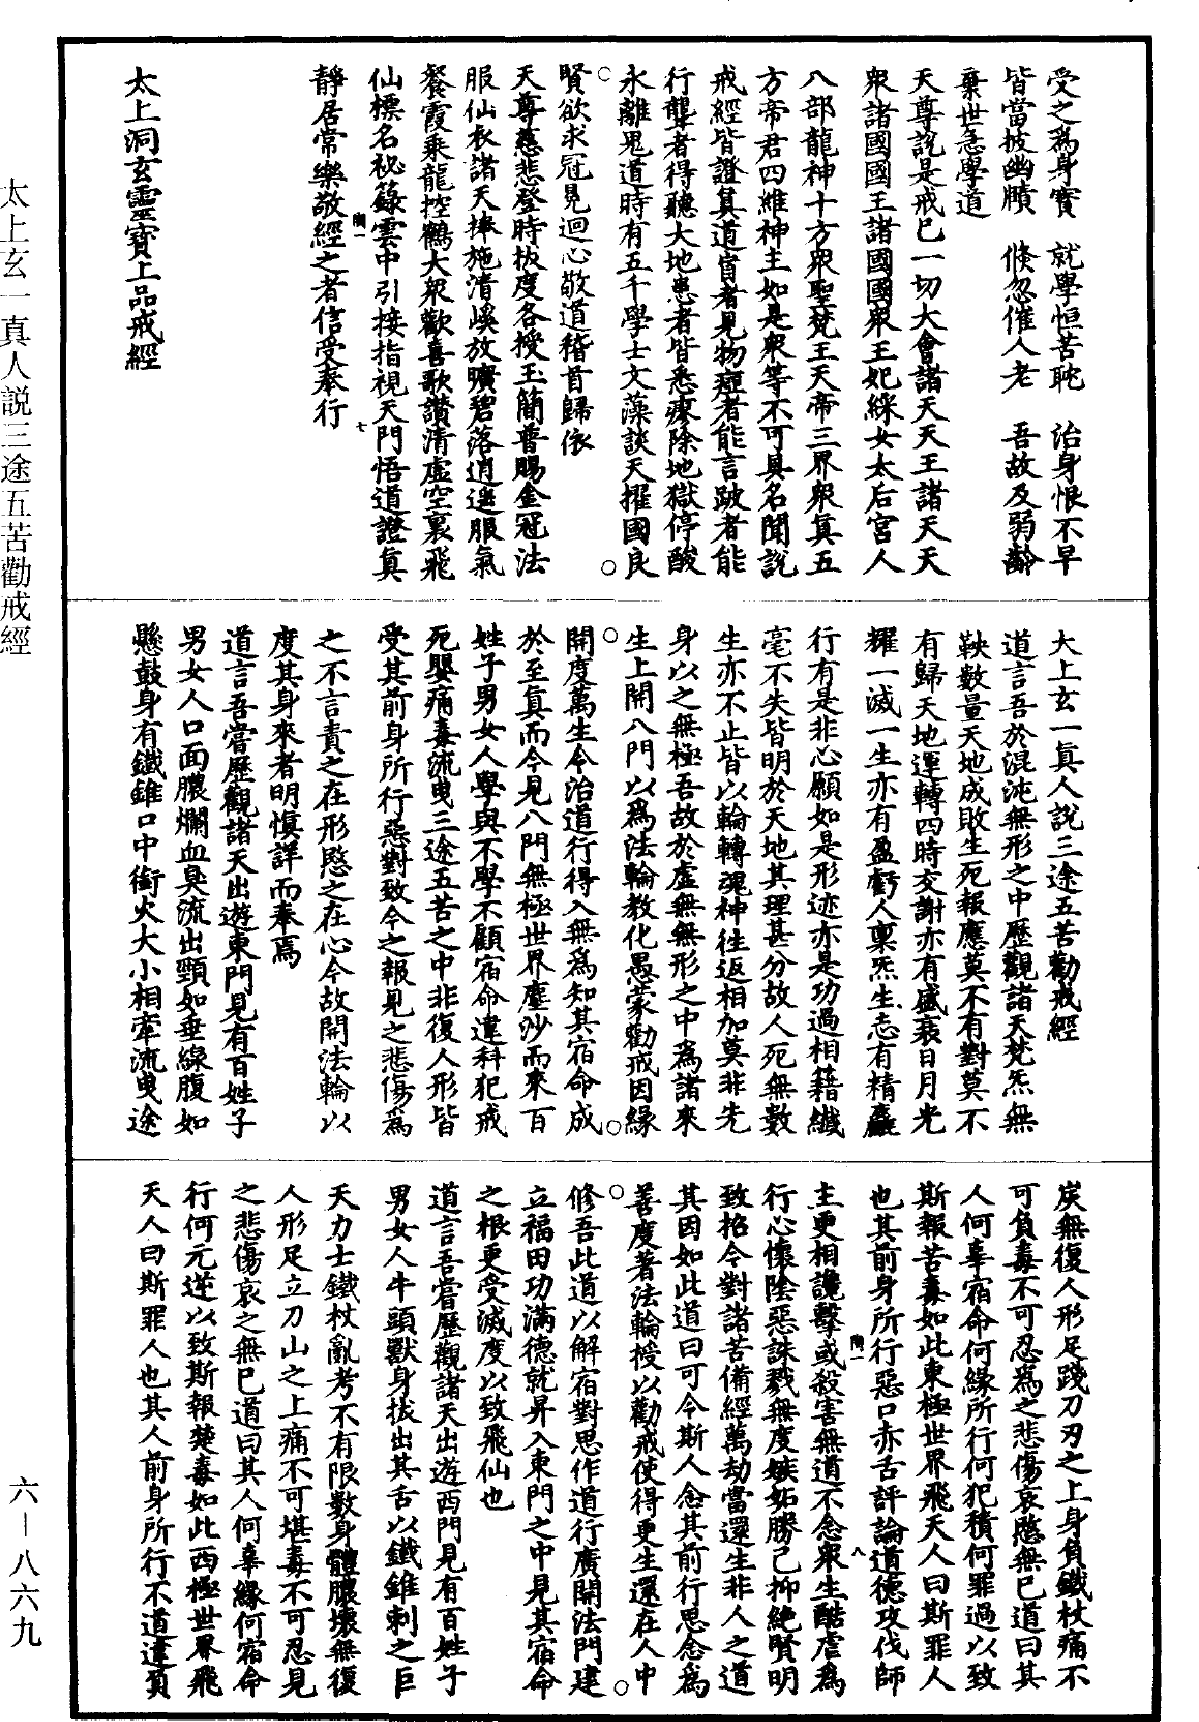 受之爲身寶　就學恒苦耽　治身恨不早
皆當披幽牘　倐忽催人老　吾故及弱齡
棄世急學道
天尊說是戒已一切大會諸天天王諸天天
衆諸國國王諸國國衆王妃綵女太后宮人
八部龍神十方衆聖梵王天帝三界衆眞五
方帝君四維神主如是衆等不可具名聞說
戒經皆證其道盲者見物瘂者能言跛者能
行聾者得聽大地患者皆悉瘳除地獄停酸
永離鬼道時有五千學士文藻談天擢國良
賢欲求冠見迴心敬道稽首歸依
天尊慈悲登時拔度各授玉簡普賜金冠法
服仙衣諸天捧施清嵠放曠碧落逍遥服氣
餐霞乘龍控鶴大衆歡喜歌讃清虛空裏飛
仙標名祕籙雲中引接指視天門悟道證眞
靜居常樂敬經之者信受奉行
太上洞玄靈寶上品戒經
大上玄一眞人說三途五苦勸戒經
道言吾於混沌無形之中歷觀諸天梵炁無
鞅數量天地成敗生死報應莫不有對莫不
有歸天地運轉四時交謝亦有盛衰日月光
耀一滅一生亦有盈虧人稟炁生志有精麤
行有是非心願如是形迹亦是功過相籍纖
毫不失皆明於天地其理甚分故人死無數
生亦不止皆以輪轉魂神往返相加莫非先
身以之無極吾故於虛無無形之中爲諸來
生上開八門以爲法輪教化愚蒙勸戒因緣
開度萬生令治道行得入無爲知其宿命成
於至眞而今見八門無極世界塵沙而來百
姓子男女人學與不學不顧宿命違科犯戒
死嬰痛毒流曳三途五苦之中非復人形皆
受其前身所行惡對致今之報見之悲傷爲
之不言責之在形愍之在心今故開法輪以
度其身來者明愼詳而奉焉
道言吾嘗歷觀諸天出遊東門見有百姓子
男女人口面膿爛血臭流出頸如垂線腹如
懸鼓身有鐵錐口中銜火大小相牽流曳途
炭無復人形足踐刀刃之上身負鐵杖痛不
可負毒不可忍爲之悲傷哀愍無已道曰其
人何辜宿命何緣所行何犯積何罪過以致
斯報苦毒如此東極世界飛天人曰斯罪人
也其前身所行惡口赤舌評論道德攻伐師
主更相讒擊或殺害無道不念衆生酷虐爲
行心懷陰惡誅戮無度嫉妬勝己抑絶賢明
致招今對諸苦備經萬劫當還生非人之道
其因如此道曰可令斯人念其前行思念爲
善度著法輪授以勸戒使得更生還在人中
修吾此道以解宿對思作道行廣開法門建
立福田功滿德就昇入東門之中見其宿命
之根更受滅度以致飛仙也
道言吾嘗歷觀諸天出遊西門見有百姓子
男女人牛頭獸身拔出其舌以鐵錐刺之巨
天力士鐵杖亂考不有限數身體膿壞無復
人形足立刀山之上痛不可堪毒不可忍見
之悲傷哀之無已道曰其人何辜緣何宿命
行何元逆以致斯報楚毒如此西極世界飛
天人曰斯罪人也其人前身所行不道違負
太上玄一真人説三途五苦勸戒經
六—八六九